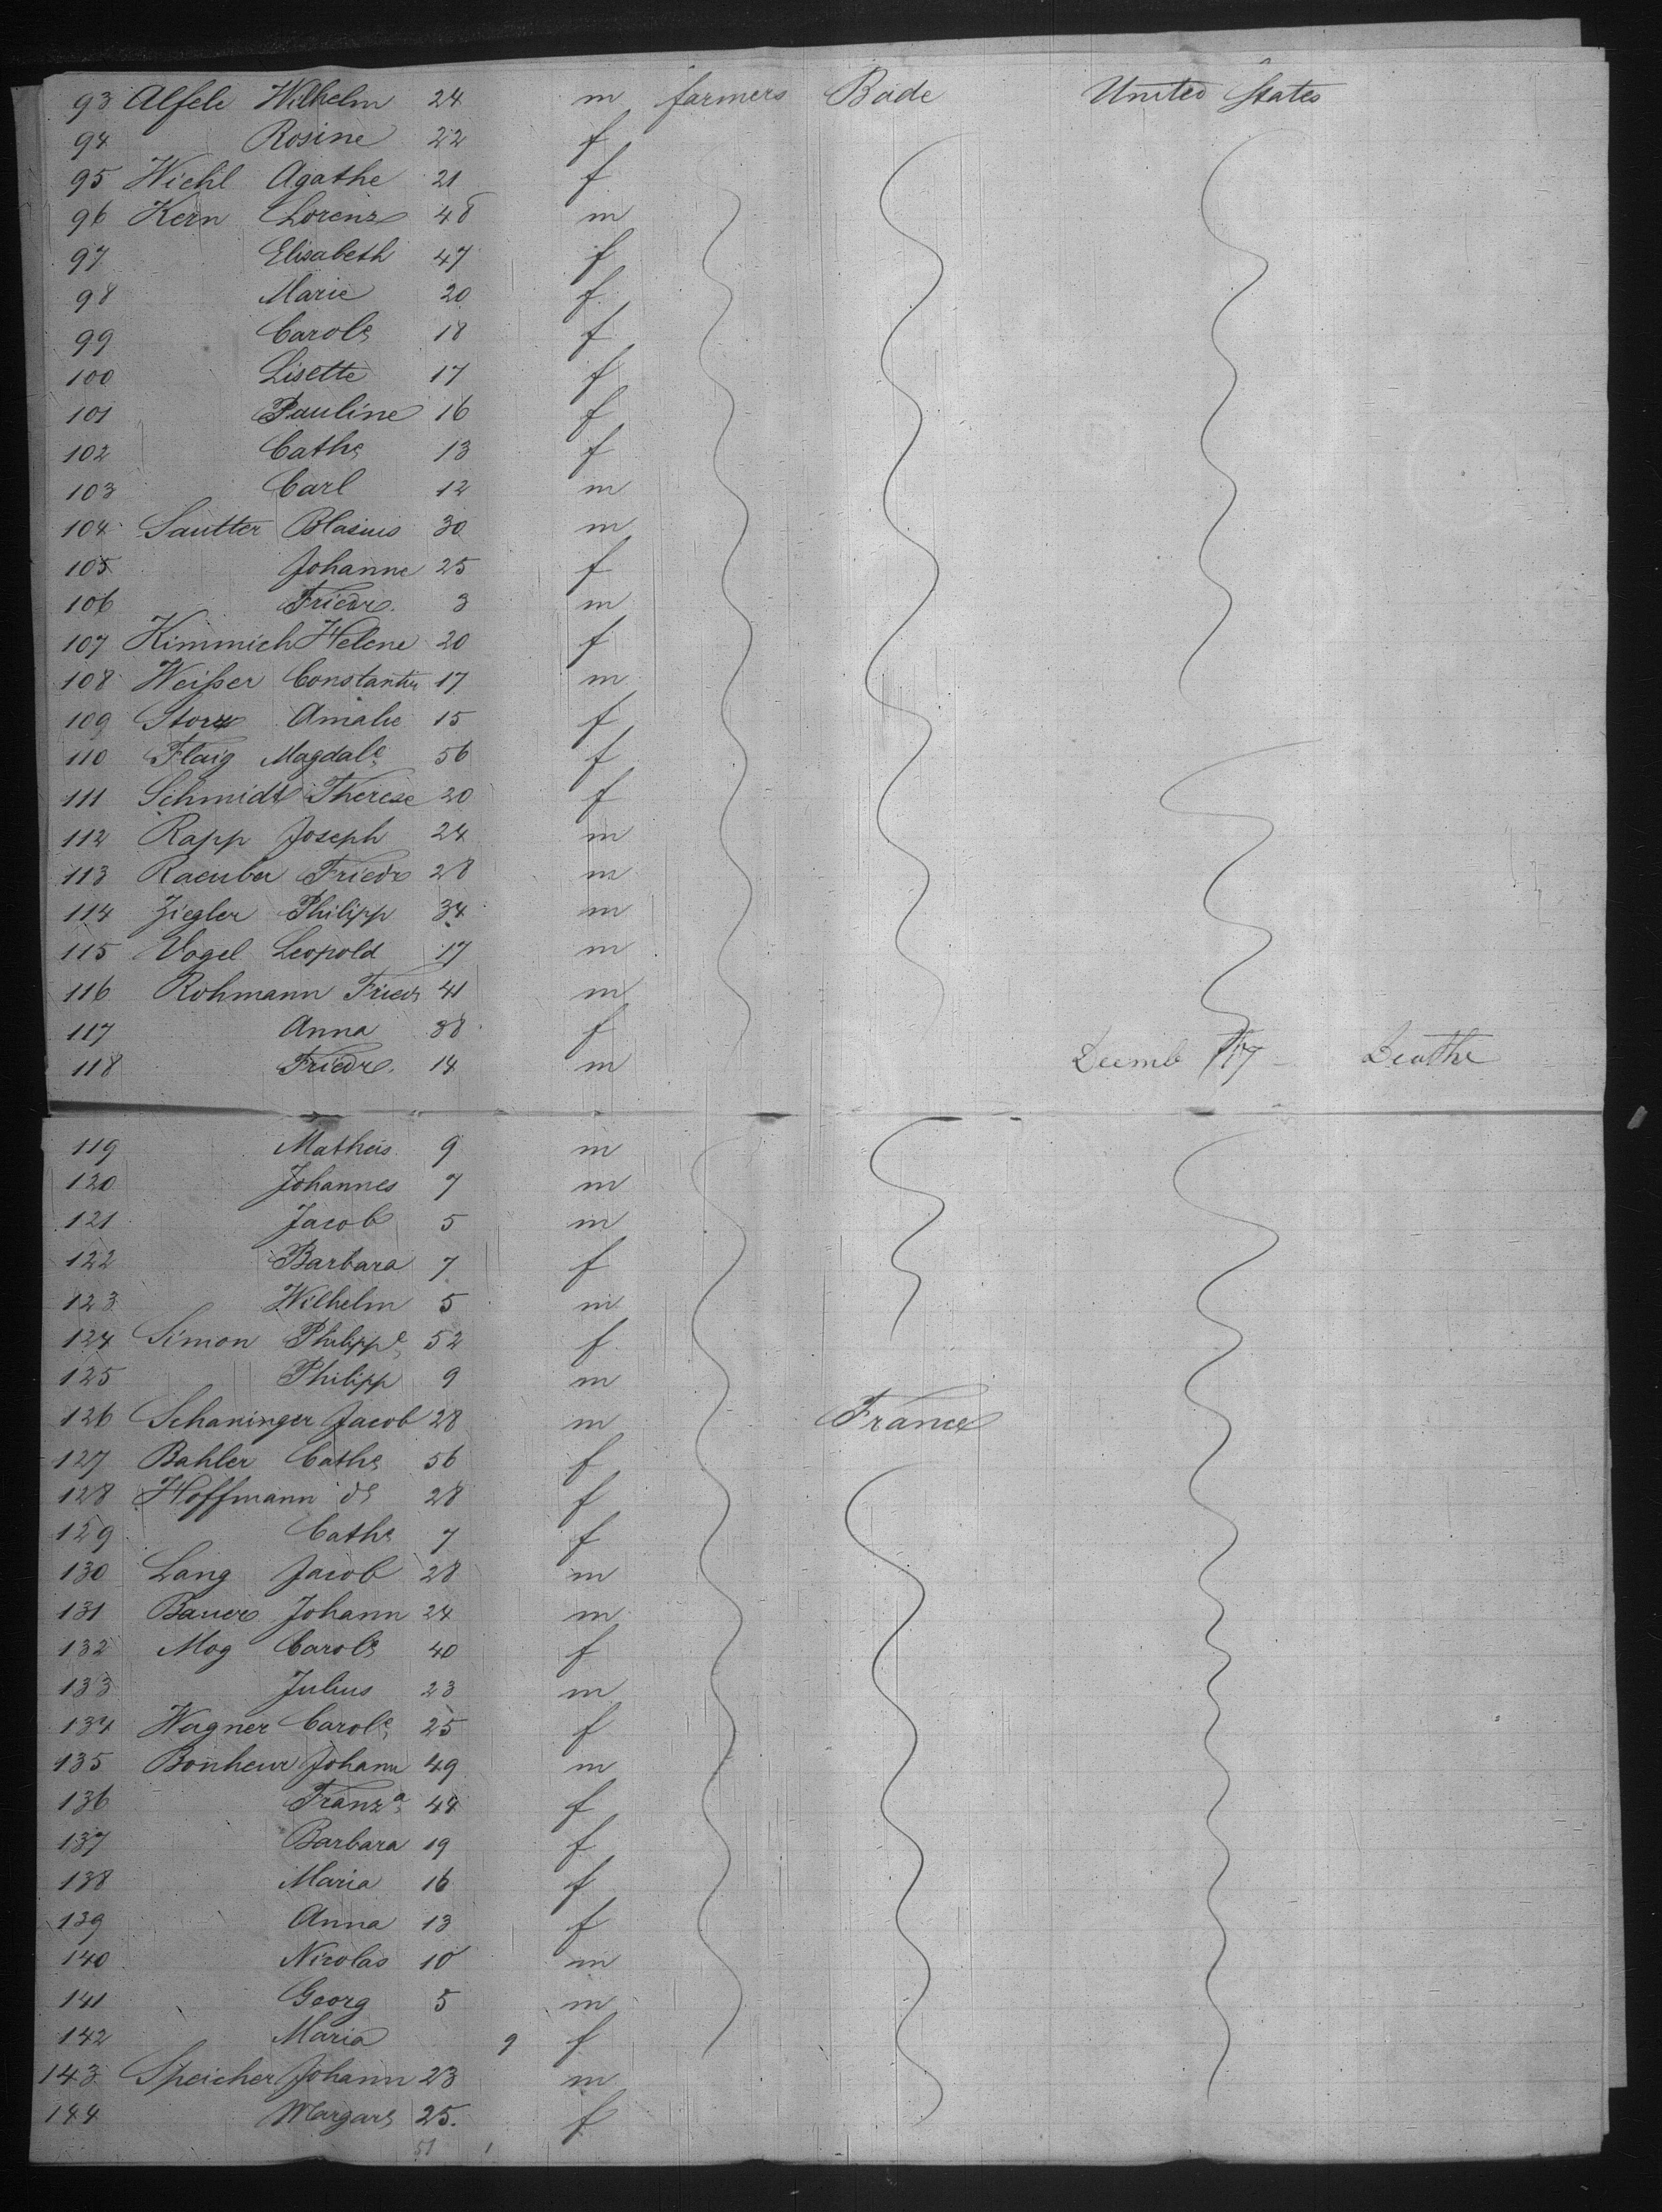 93 Alfele Wilhelm 24 m farmers Bade United States
94 Rosine 22 f
95 Wiehl Agathe 21 f
96 Kern Lorenz 48 m
97 Elisabeth 47 f
98 Marie 20 f
99 Carole 18 f
100 Lisette 17 f
101 Pauline 16 f
102 Cathe 13 f
103 Carl 12 m
104 Sautter Blasius 30 m
105 Johanne 25 f
106 Friedr. 3 m
107 Kimmich Helene 20 f
108 Weißer Constantin 17 m
109 Storz Amalie 15 f
110 Flaig Magdale 56 f
111 Schmidt Therese 20 f
112 Rapp Joseph 24 m
113 Raeuber Friedr 28 m
114 Ziegler Philipp 34 m
115 Vogel Leopold 17 m
116 Rohmann Friedr 41 m
117 Anna 38 f
118 Friedr. 14 m Decemb 17 - Deathe
119 Matheis 9 m
120 Johannes 7 m
121 Jacob 5 m
122 Barbara 7 f
123 Wilhelm 5 m
124 Simon Philippe 52 f
125 Philipp 9 m
126 Schaninger Jacob 28 m France
127 Bahler Cathe 56 f
128 Hoffmann do 28 f
129 Cathe 7 f
130 Lang Jacob 28 m
131 Bauer Johann 24 m
132 Mog Carole 40 f
133 Julius 23 m
134 Wagner Carole 25 f
135 Bonheur Johann 49 m
136 Franza 48 f
137 Barbara 19 f
138 Maria 16 f
139 Anna 13 f
140 Nicolas 10 m
141 Georg 5 m
142 Maria 9 f
143 Speicher Johann 23 m
144 Margar 25. f
51 1